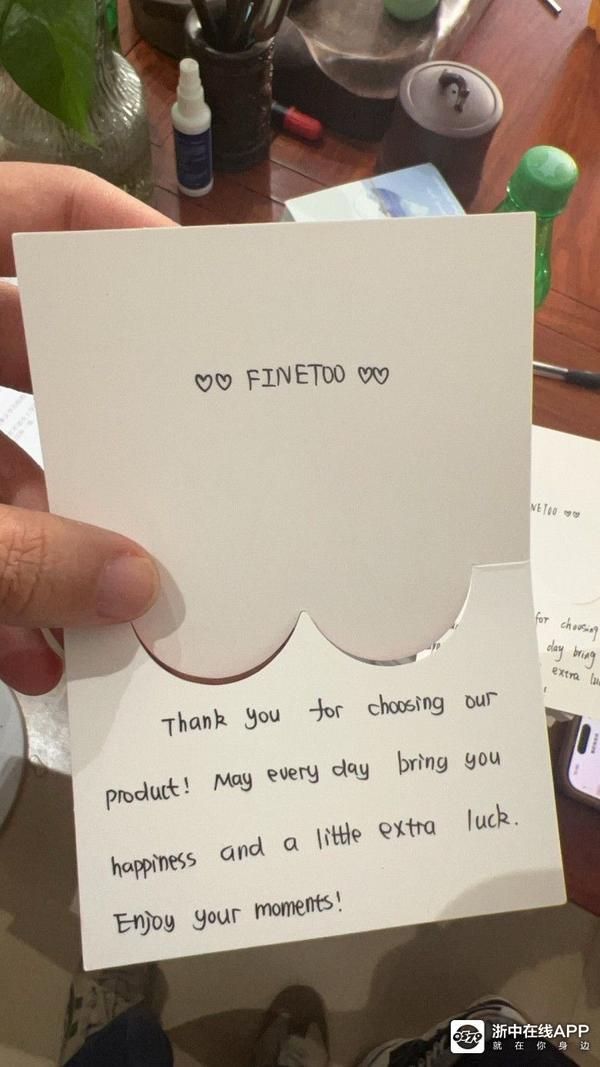 ♡♡ FINETOO ♡♡
Thank you for choosing our
product! May every day bring you
happiness and a little extra luck.
Enjoy your moments!
NETOO ♡♡
for choosing
day bring
extra
浙中在线APP
就在你身边